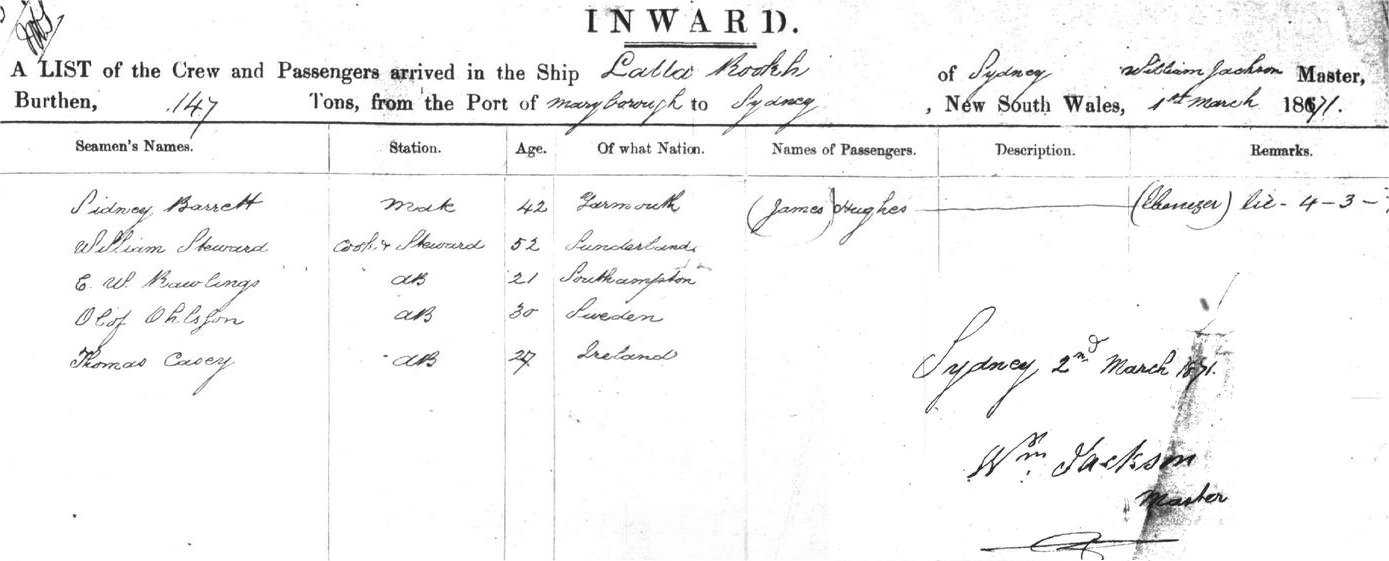 INWARD.
A LIST of the Crew and Passengers arrived in the Ship Lalla Rookh of Sydney William Jackson Master,
Burthen, 147 Tons, from the Port of Maryborough to Sydney, New South Wales, 1st March 1871.
Seamen's Names. Station. Age. Of what Nation. Names of Passengers. Description. Remarks.
Sidney Barrett Mate 42 Yarmouth (James) Hughes (Ebenezer) lic - 4 - 3 -
William Steward Cook & Steward 52 Sunderland
E. W. Rawlings AB 21 Southampton
Olof Ohlsson AB 30 Sweden
Thomas Casey AB 27 Ireland
Sydney 2nd March 1871.
Wm Jackson
Master